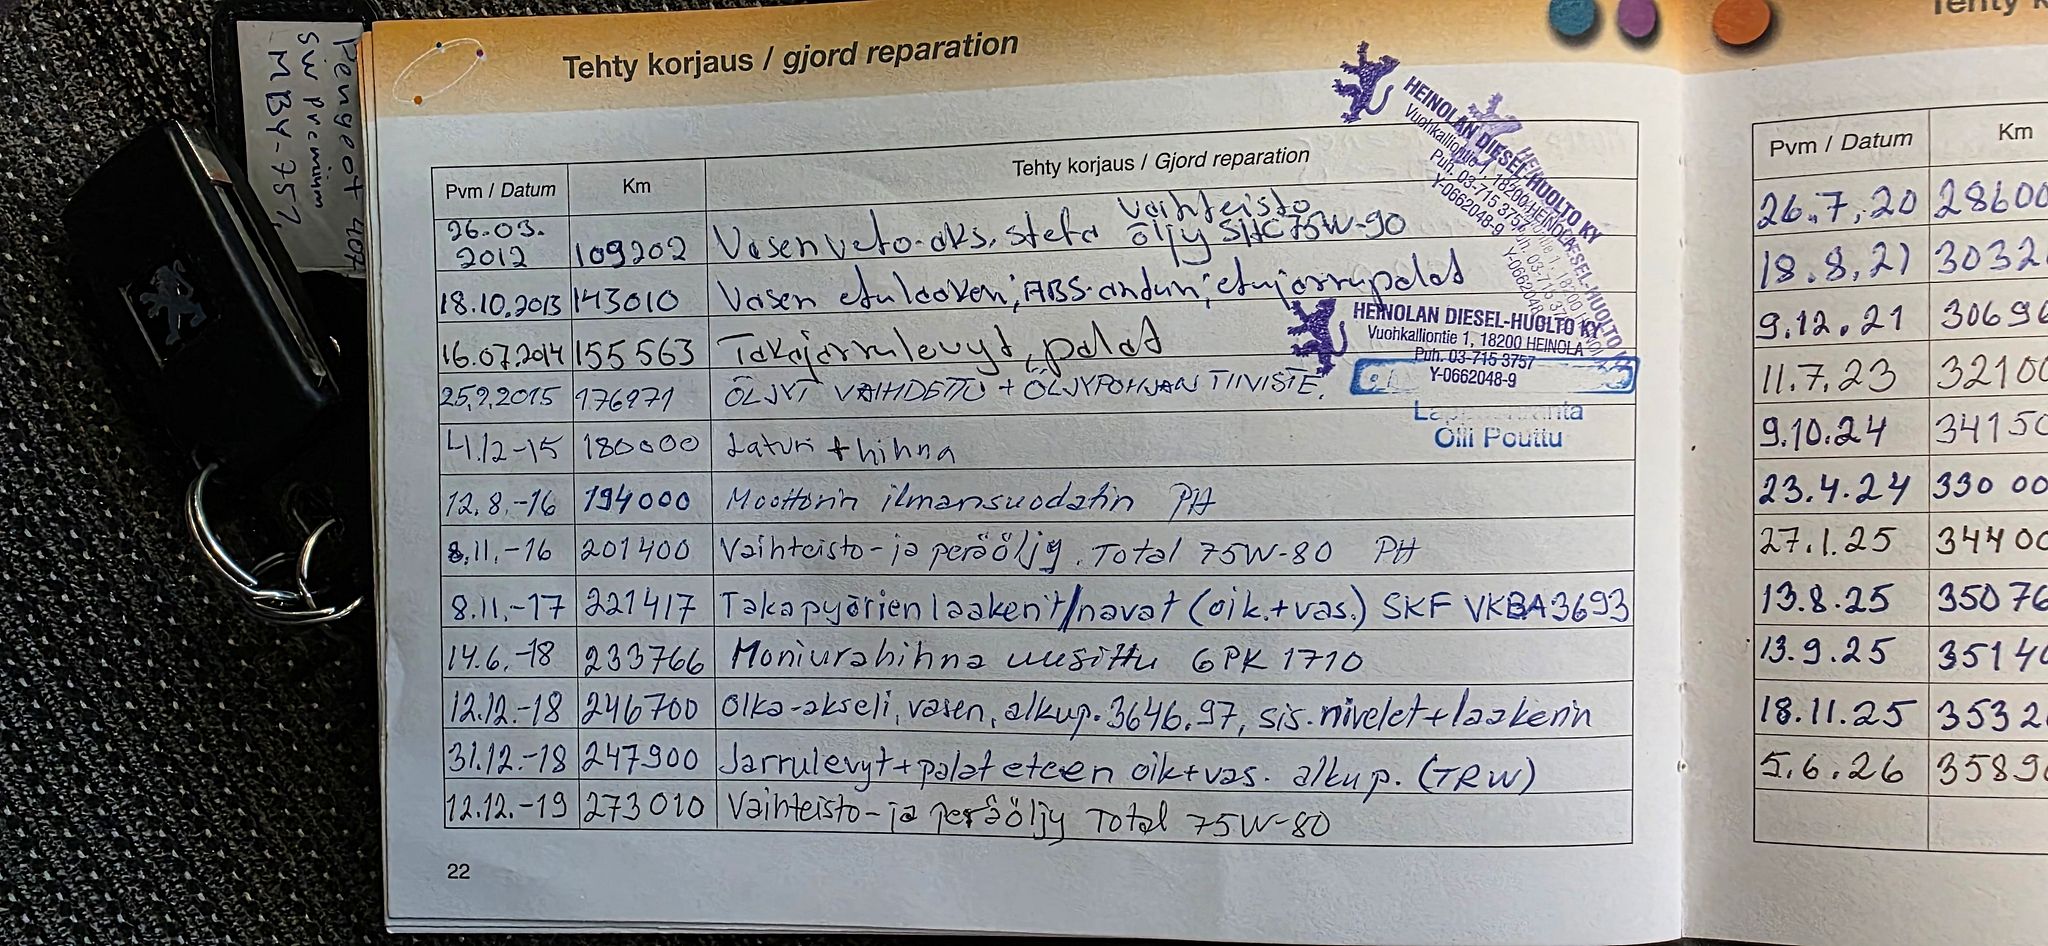 Peugeot 407
SW premium
MBY-757
Tehty korjaus / gjord reparation
Tehty k
HEINOLAN DIESEL-HUOLTO KY
Vuohkalliontie 1, 18200 HEINOLA
Puh. 03-715 3757
Y-0662048-9
HEINOLAN DIESEL-HUOLTO KY
Pvm / Datum Km Tehty korjaus / Gjord reparation
26.03.2012 109202 Vasen veto-aks. stefa vaihteisto öljy SHC75W-90
18.10.2013 143010 Vasen etulaakeri, ABS-anturi, etujarrupalat
16.07.2014 155563 Takajarrulevyt, palat
HEINOLAN DIESEL-HUOLTO KY
Vuohkalliontie 1, 18200 HEINOLA
Puh. 03-715 3757
Y-0662048-9
25.9.2015 176971 ÖLJYT VAIHDETTU + ÖLJYPOHJAN TIIVISTE.
Olli Pouttu
4.12-15 180000 Laturi + hihna
12.8.-16 194000 Moottorin ilmansuodatin PH
8.11.-16 201400 Vaihteisto- ja peräöljy. Total 75W-80 PH
8.11.-17 221417 Takapyörien laakerit/navat (oik.+vas.) SKF VKBA3693
14.6.-18 233766 Moniurahihna uusittu 6PK 1710
12.12.-18 246700 Olka-akseli, vasen, alkup. 3646.97, sis. nivelet+laakerin
31.12.-18 247900 Jarrulevyt+palat eteen oik+vas. alkup. (TRW)
12.12.-19 273010 Vaihteisto- ja peräöljy Total 75W-80
22
Pvm / Datum Km
26.7.20 28600
18.8.21 3032
9.12.21 3069
11.7.23 32100
9.10.24 34150
23.4.24 330 00
27.1.25 34400
13.8.25 35076
13.9.25 3514
18.11.25 3532
5.6.26 3589